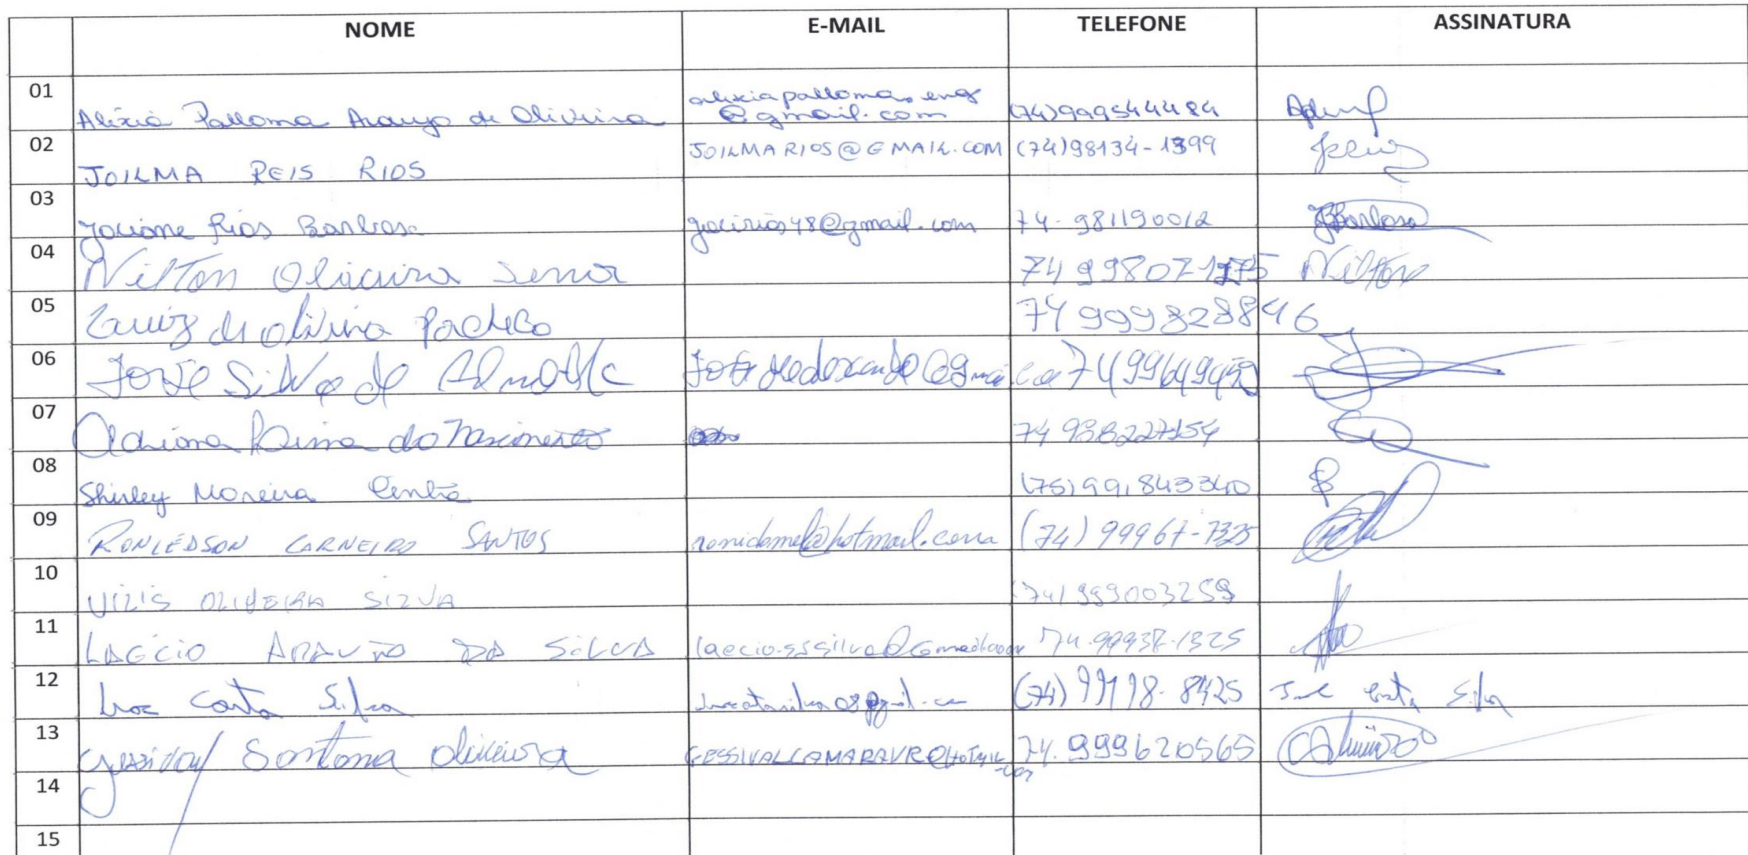 NOME E-MAIL TELEFONE ASSINATURA
01 Alixia Palloma Araujo de Oliveira alixiapalloma.eng @gmail.com (74)999544484
02 JOILMA REIS RIOS JOILMARIOS@GMAIL.COM (74)98134-1399
03 Jociane Rios Barbosa jocirios48@gmail.com 74-981190012 JBarbosa
04 Nilton Oliveira Sena 74 998071275 Nilton
05 Luiz de Oliveira Pacheco 74 999323846
06 José Silva de
07 Adriana Lima do Nascimento 74 988227154
08 Shirley Moreira (75)991843340
09 RONIEDSON CARNEIRO SANTOS ronidomel@hotmail.com (74) 99967-7325
10 UILIS OLIVEIRA SILVA (74) 999003259
11 LAÉCIO ARAUJO DA SILVA 74.99938-1325
12 José Costa Silva (74) 99198-8425 José Costa Silva
13 Gessival Santana Oliveira GESSIVALCAMARAVR@HOTMAIL.COM 74.999620565
14
15